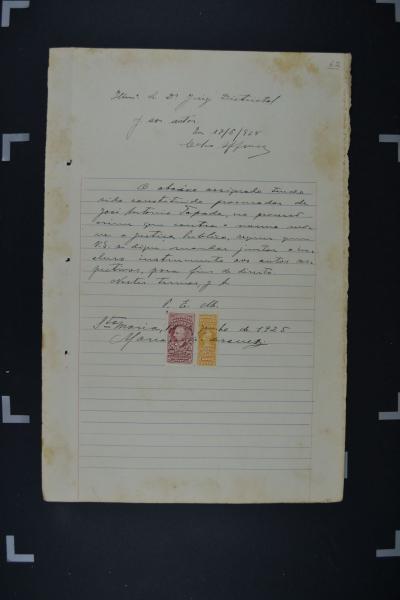 62
Snr. Dr. Juiz Districtal
O abaixo assignado tendo
sido constituido procurador de
José Antonio Tapada, no processo
crime que contra o mesmo mo-
ve a justiça publica, requer que
V.S. se digne mandar juntar o in-
cluso instrumento aos autos res-
pectivos, para fins de direito.
Nestes termos,
P. E. M.
Sta Maria, junho de 1925